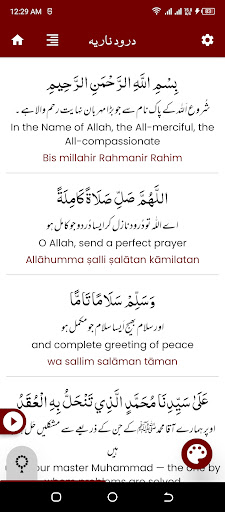 12:29 AM
درود ناریہ
بِسْمِ اللَّهِ الرَّحْمَنِ الرَّحِيْمِ
شروع اللہ کے پاک نام سے جو بڑا مہربان نہایت رحم والا ہے۔
In the Name of Allah, the All-merciful, the
All-compassionate
Bis millahir Rahmanir Rahim
اللَّهُمَّ صَلِّ صَلَاةً كَامِلَةً
اے اللہ تو درود نازل کر ایسا درود جو کامل ہو
O Allah, send a perfect prayer
Allāhumma ṣalli ṣalātan kāmilatan
وَسَلِّمْ سَلَامًا تَامًّا
اور سلام بھیج ایسا سلام جو مکمل ہو
and complete greeting of peace
wa sallim salāman tāman
عَلَى سَيِّدِنَا مُحَمَّدٍ الَّذِي تَنْحَلُّ بِهِ الْعُقَدُ
اوپر ہمارے آقا محمد ﷺ کے جن کے ذریعے سے مشکلیں حل
ہیں
our master Muhammad — the one by